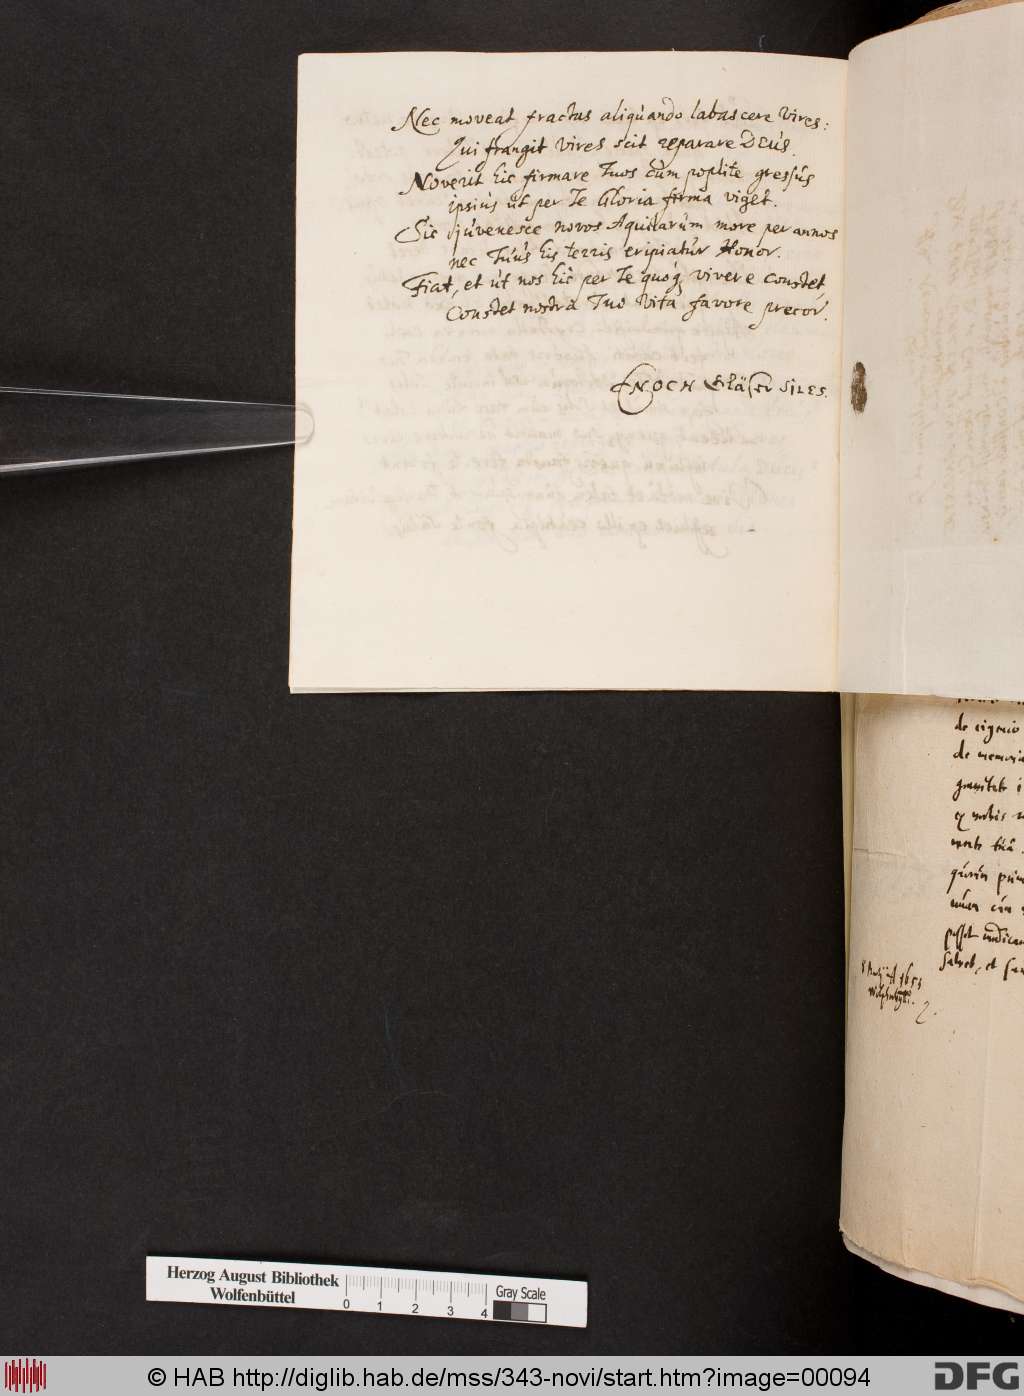 Nec moveat fractas aliquando labascere vires:
Qui frangit vires scit reparare DEUS.
Noverit hic firmare Tuos cum poplite gressus
ipsius ut per Te Gloria firma viget.
Sic juvenesce novos Aquilarum more per annos
nec Tuus his terris eripiatur Honor.
Fiat, et ut nos hic per Te quoq; vivere constet,
Constet nostra Tuo Vita favore precor.
ENOCH Gläser SILES.
de
de memoria
gravitate
ex nobis
morte tuâ
posset
salvet, et
1653
Herzog August Bibliothek
Wolfenbüttel
0 1 2 3 4
Gray Scale
© HAB http://diglib.hab.de/mss/343-novi/start.htm?image=00094
DFG